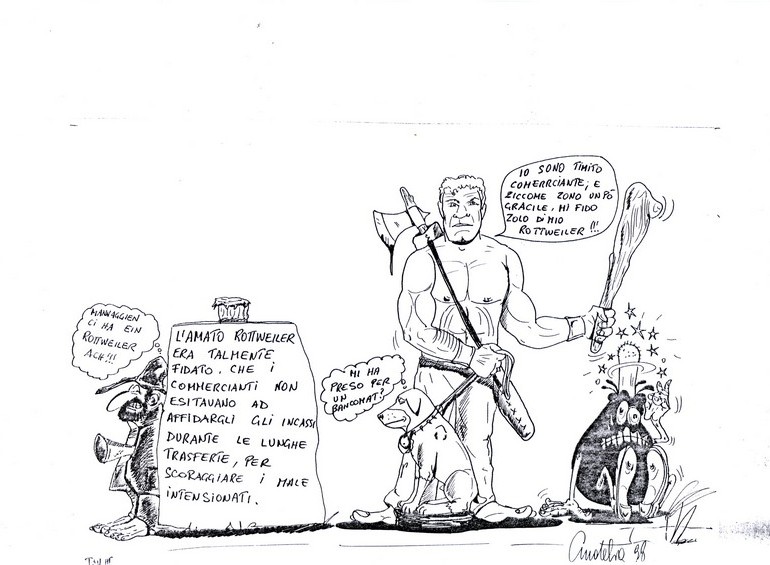 MANNAGGIEN
CI HA EIN
ROTTWEILER
ACH!!!
L'AMATO ROTTWEILER
ERA TALMENTE
FIDATO. CHE I
COMMERCIANTI NON
ESITAVANO AD
AFFIDARGLI GLI INCASSI
DURANTE LE LUNGHE
TRASFERTE, PER
SCORAGGIARE I MALE
INTENSIONATI.
MI HA
PRESO PER
UN
BANCOMAT?
IO SONO TIMITO
COMERRCIANTE, E
ZICCOME ZONO UN PÒ
GRACILE, MI FIDO
ZOLO DI MIO
ROTTWEILER !!!
98